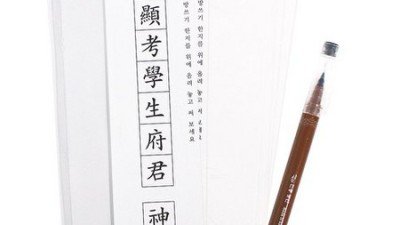 顯考學生府君 神
방쓰기 한지를 위에 올려 놓고 써 보세요
방쓰기 한지를 위에 올려 놓고